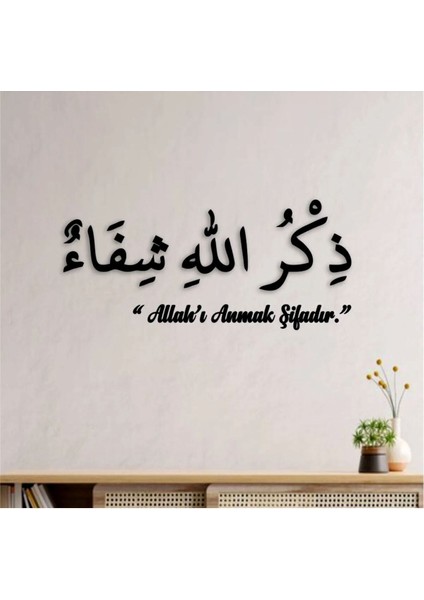 ذِكْرُ اللهِ شِفَاءٌ
“ Allah’ı Anmak Şifadır.”